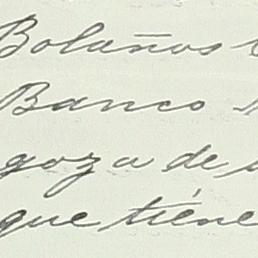 Bolaños
Banco
goza de
que tiene